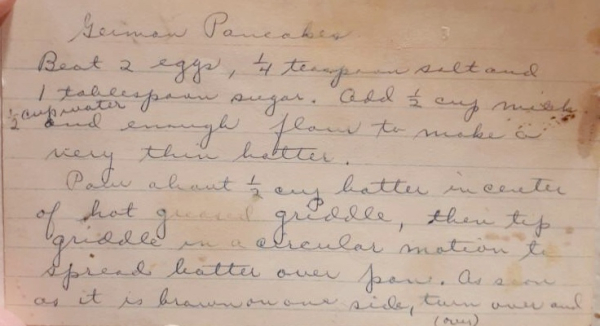 German Pancakes
Beat 2 eggs, 1/4 teaspoon salt and
1 tablespoon sugar. Add 1/2 cup milk
1/2 cup water
and enough flour to make a
very thin batter.
Pour about 1/2 cup batter in center
of hot greased griddle, then tip
griddle in a circular motion to
spread batter over pan. As soon
as it is brown on one side, turn over and
(over)